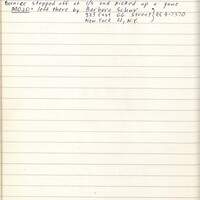 Bernice stopped off at 1/6 and picked up a game
MOJO - left there by Barbara Schwy
323 East 66 Street } RE 4-7370
New York 21, N.Y.